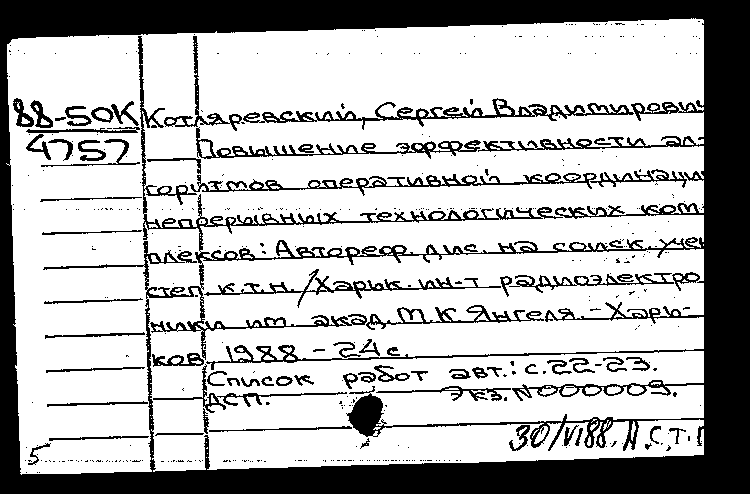 88-50К Котляревский, Сергей Владимирович
4757 Повышение эффективности ал-
горитмов оперативной координации
непрерывных технологических ком-
плексов: Автореф. дис. на соиск. учен
степ. к.т.н. /Харьк. ин-т радиоэлектро
ники им. акад. М.К Янгеля. - Харь-
ков, 1988. - 24 с.
Список работ авт.: с. 22-23.
ДСП. Экз. N000009.
30/VI 88.
5